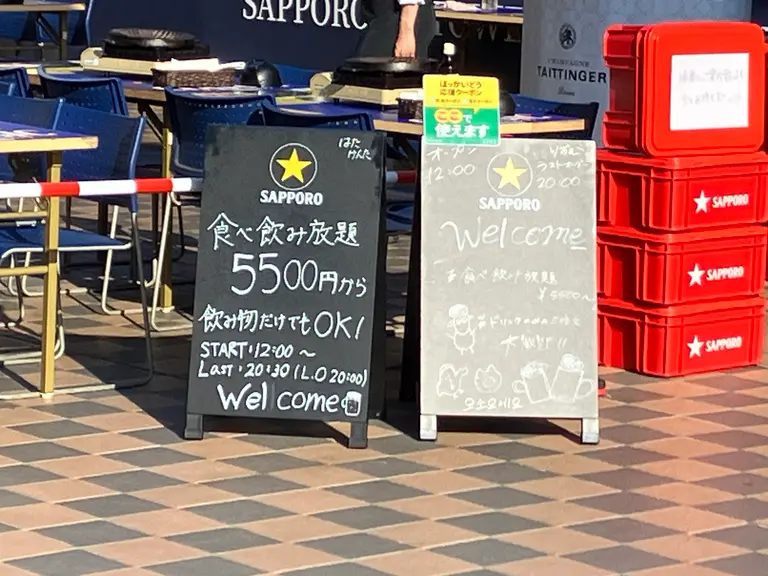 SAPPORO
CHAMPAGNE
TAITTINGER
Reims
ほっかいどう
応援クーポン
で
使えます
はた
けんた
SAPPORO
食べ飲み放題
5500円から
飲み物だけでもOK!
START:12:00～
Last:20:30(L.O 20:00)
Welcome
オープン
12:00
ラストオーダー
20:00
SAPPORO
Welcome
食べ飲み放題
¥5500～
大歓迎!!
SAPPORO
SAPPORO
SAPPORO